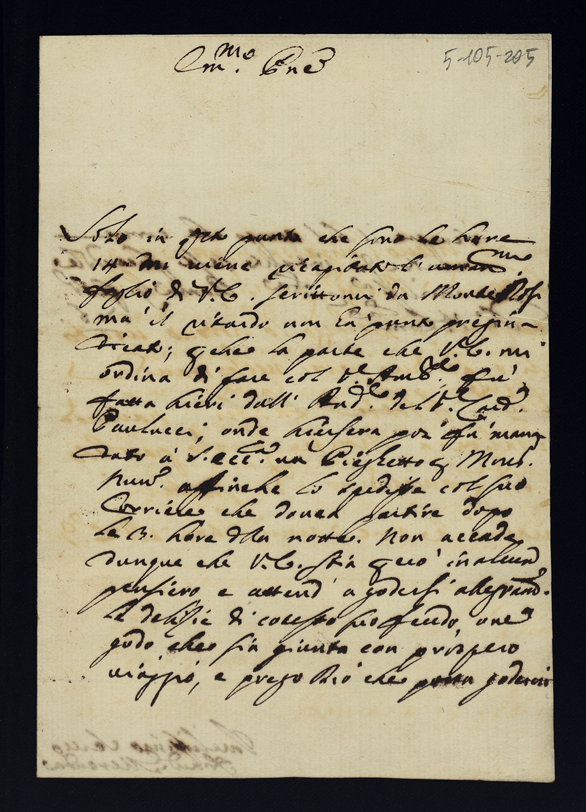 5-105-205
Em.mo Pne
Solo in q.to punto che sono le hore
14 mi viene recapitato l'uman.mo
foglio di V.E. scrittomi da Monte Rosi
mà il ritardo non hà punto pregiu-
dicato; p che la parte che V.E. mi
ordina di fare col
fatta hieri dall' And. del S. Card.
Paulucci; onde hiersera poi fù man-
dato à S. Ecc.a un Pieghetto p Mons.
Nun. affinche lo spedisse col suo
Corriere che doveva partire dopo
le 3. hore della notte. Non accade
dunque che V.E. stia p ciò in alcun
pensiero e attend a godersi allegram.
le delitie di cotesto suo feudo, ove
godo che sia giunta con prospero
viaggio, e prego Dio che possa godersi